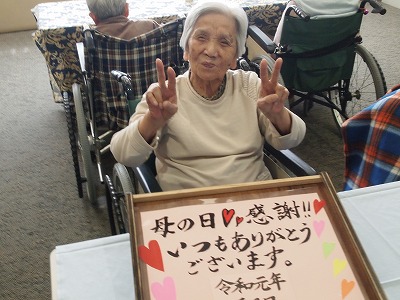 母の日 感謝!!
いつもありがとう
ございます。
令和元年